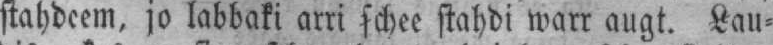 stahdeem, jo labbaki arri schee stahdi warr augt. Lau-